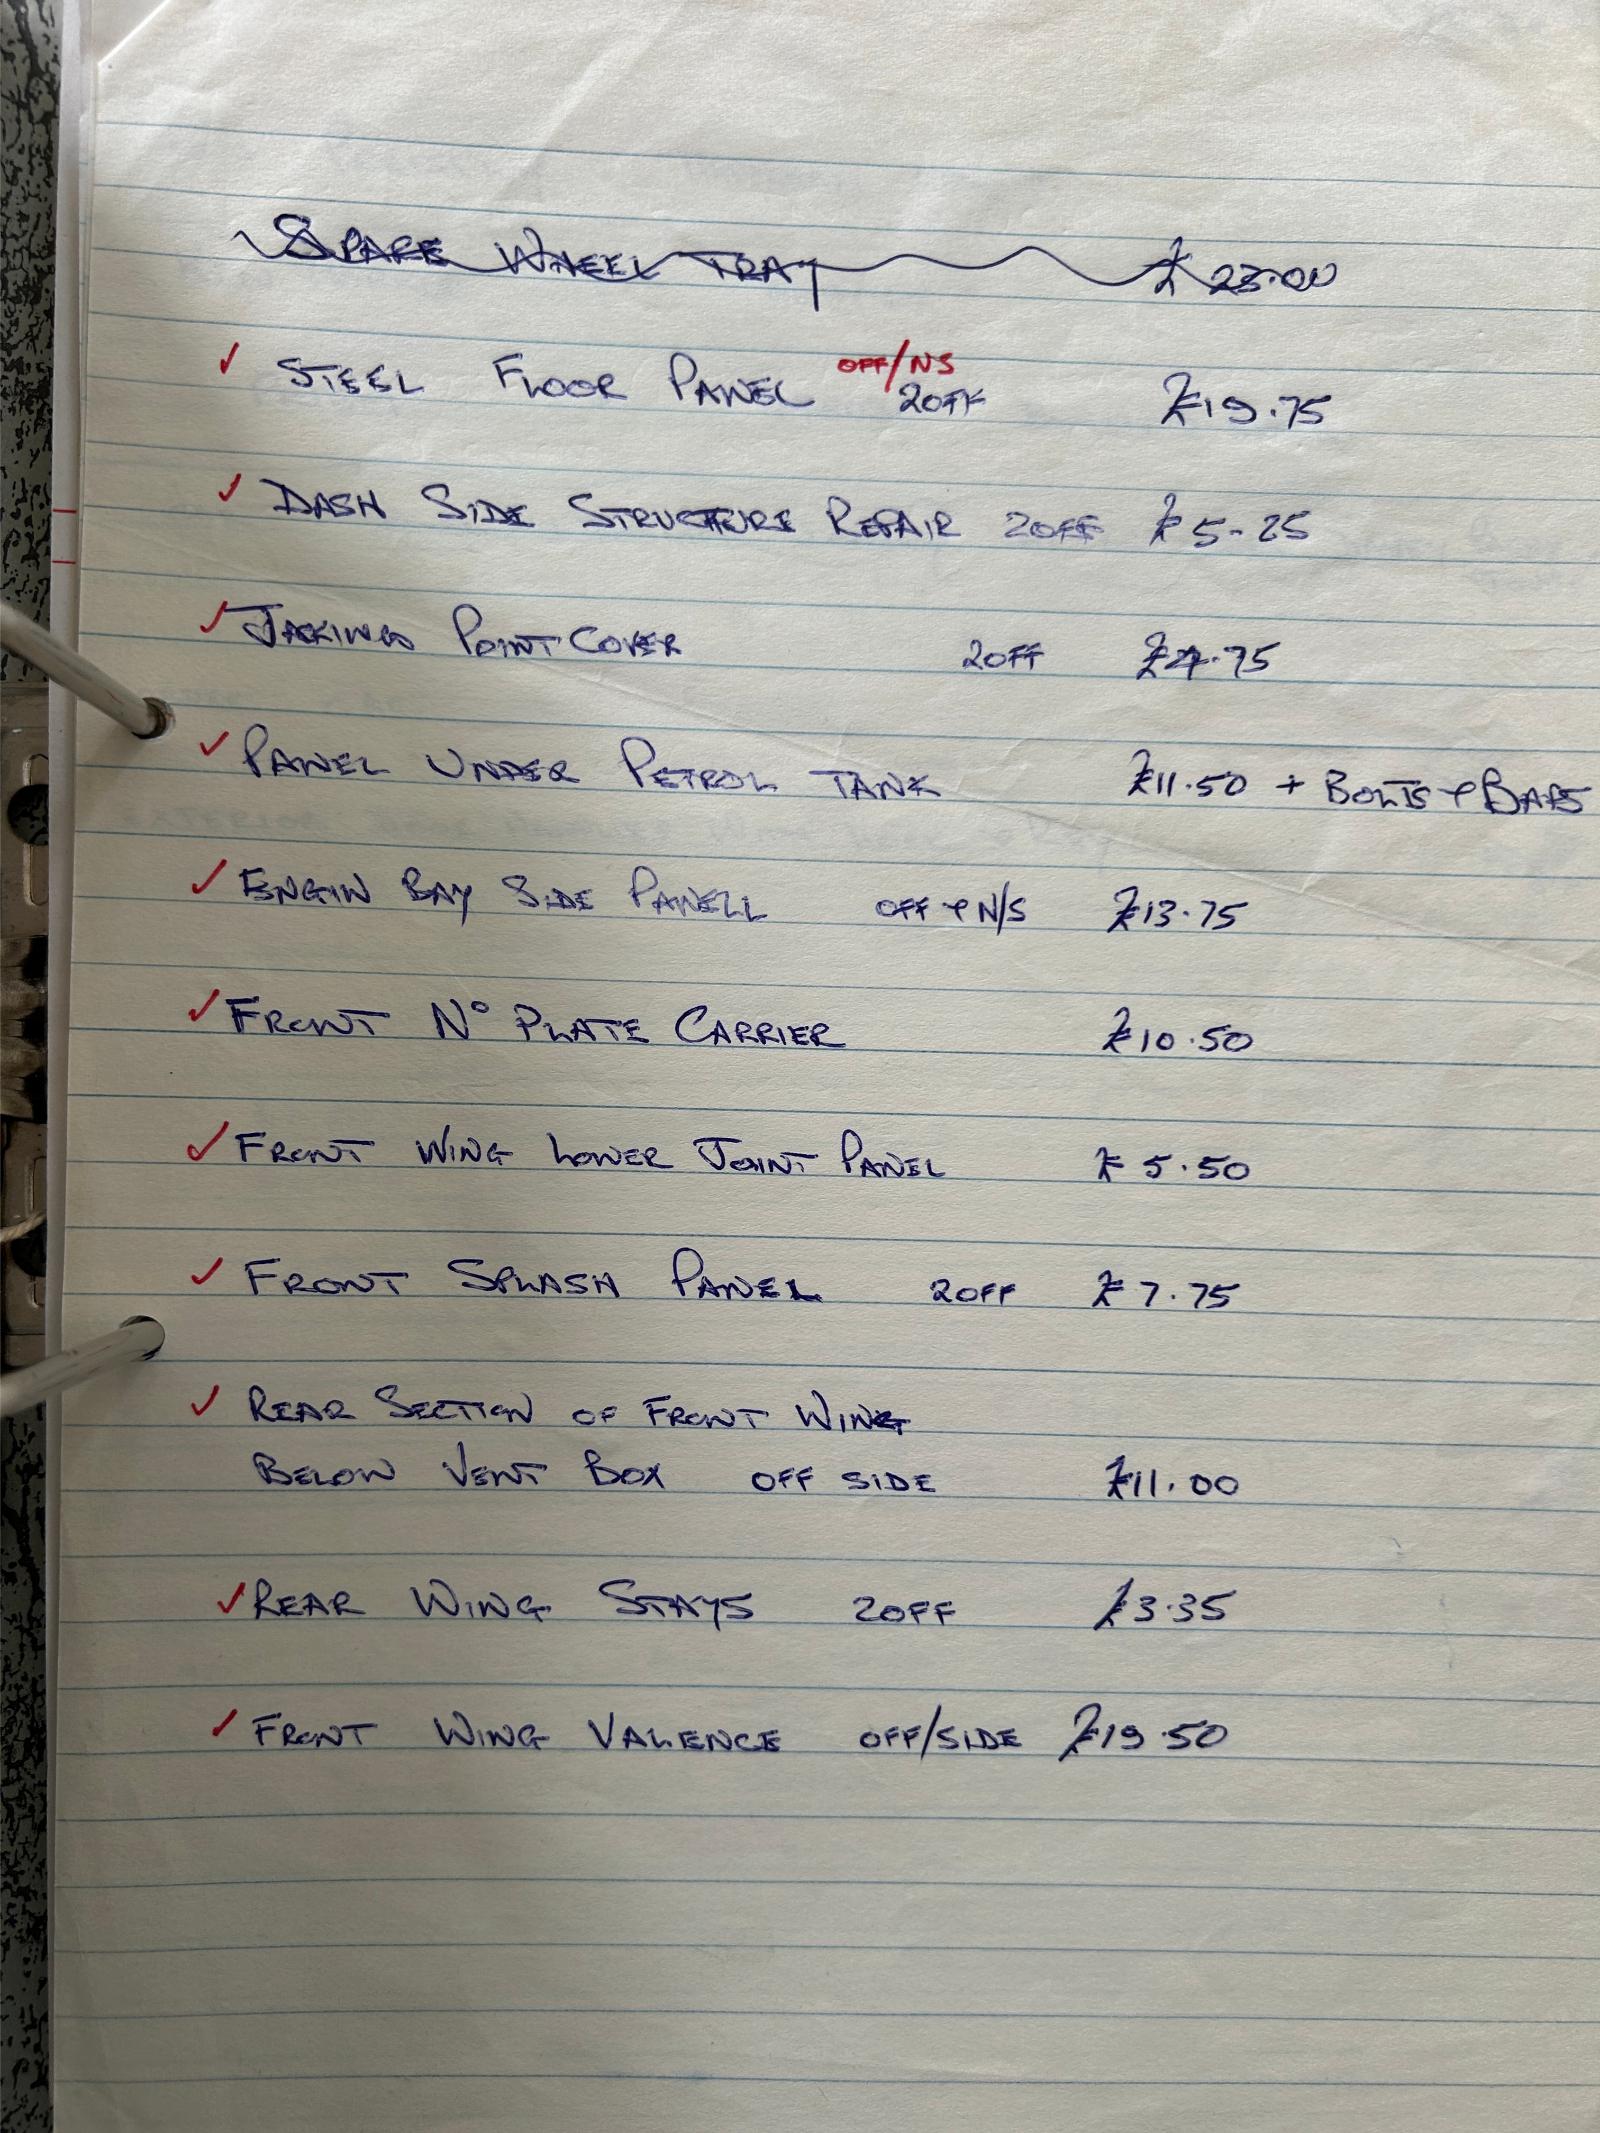 SPARE WHEEL TRAY £23.00
✓ STEEL FLOOR PANEL OFF/NS 2OFF £19.75
✓ DASH SIDE STRUCTURE REPAIR 2OFF £5-25
✓ JACKING POINT COVER 2OFF £4.75
✓ PANEL UNDER PETROL TANK £11.50 + BOLTS & BARS
✓ ENGIN BAY SIDE PANELL OFF & N/S £13.75
✓ FRONT Nº PLATE CARRIER £10.50
✓ FRONT WING LOWER JOINT PANEL £5.50
✓ FRONT SPLASH PANEL 2OFF £7.75
✓ REAR SECTION OF FRONT WING
BELOW VENT BOX OFF SIDE £11.00
✓ REAR WING STAYS 2OFF £3.35
✓ FRONT WING VALENCE OFF/SIDE £19.50